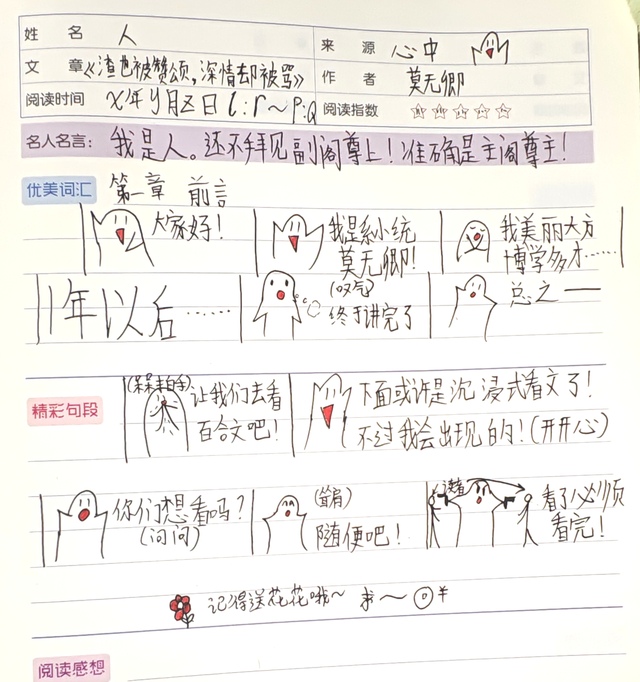 姓 名 人
来 源 心中
文 章 《渣也被赞颂，深情却被骂》
作 者 莫无卿
阅读时间 X年y月Z日 l:r～P:Q
阅读指数 ☆☆☆☆☆
名人名言： 我是人。还不拜见副阁尊上！准确是主阁尊主！
优美词汇 第一章 前言
大家好！
我是系小统
莫无卿！
我美丽大方
博学多才……
1年以后……
(叹气)
终于讲完了
总之——
精彩句段
(呆呆来自学)
让我们去看
百合文吧！
下面或许是沉浸式看文了！
不过我会出现的！(开开心)
你们想看吗？
(问问)
(耸肩)
随便吧！
读者
看了必须
看完！
记得送花花哦～ 求～
阅读感想